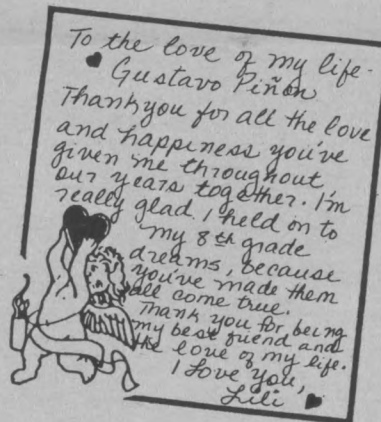 To the love of my life-
Gustavo Piñon
Thank you for all the love
and happiness you've
given me throughout
our years together. I'm
really glad I held on to
my 8th grade
dreams, because
you've made them
all come true.
Thank you for being
my best friend and
the love of my life.
I Love You,
Lili